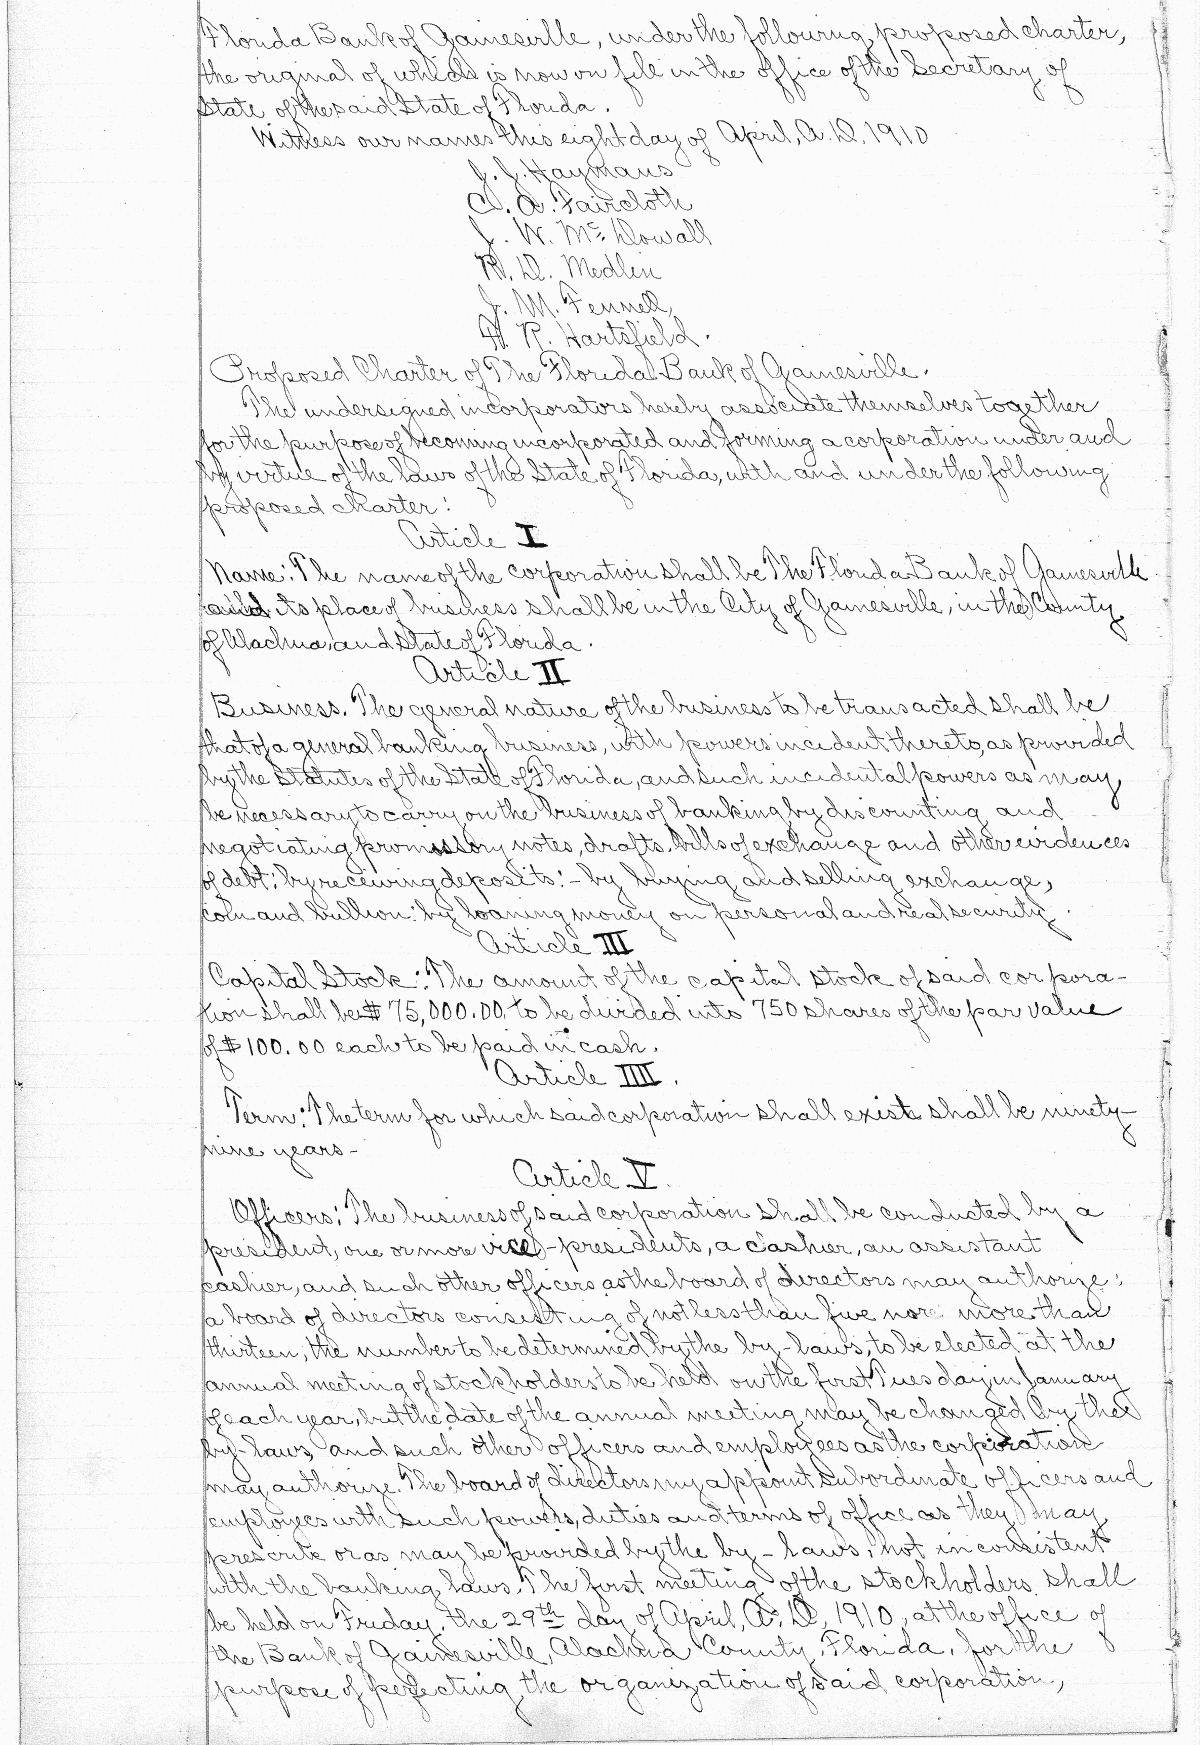 Florida Bank of Gainesville, under the following proposed charter,
the original of which is now on file in the office of the Secretary of
State of the said State of Florida.
Witness our names this eight day of April, A. D. 1910
J. J. Haymans
C. A. Faircloth
J. W. McDowall
R. D. Medlin
J. M. Fennell,
H. R. Hartsfield.
Proposed Charter of The Florida Bank of Gainesville.
The undersigned incorporators hereby associate themselves together
for the purpose of becoming incorporated and forming a corporation under and
by virtue of the laws of the State of Florida, with and under the following
proposed charter:
Article I
Name: The name of the corporation shall be The Florida Bank of Gainesville
and its place of business shall be in the City of Gainesville, in the County
of Alachua, and State of Florida.
Article II
Business. The general nature of the business to be transacted shall be
that of a general banking business, with powers incident thereto, as provided
by the Statutes of the State of Florida, and such incidental powers as may
be necessary to carry on the business of banking by discounting and
negotiating promissory notes, drafts, bills of exchange and other evidences
of debt; by receiving deposits:- by buying and selling exchange,
coin and bullion: by loaning money on personal and real security.
Article III
Capital Stock: The amount of the capital stock of said corpora-
tion shall be $75,000.00, to be divided into 750 shares of the par value
of $100.00 each to be paid in cash.
Article IIII.
Term: The term for which said corporation shall exist shall be ninety-
nine years-
Article V.
Officers: The business of said corporation shall be conducted by a
president, one or more vice-presidents, a cashier, an assistant
cashier, and such other officers as the board of directors may authorize;
a board of directors consisting of not less than five nor more than
thirteen, the number to be determined by the by-laws, to be elected at the
annual meeting of stockholders to be held on the first Tuesday in January
of each year, but the date of the annual meeting may be changed by the
by-laws, and such other officers and employees as the corporation
may authorize. The board of directors my appoint subordinate officers and
employees with such powers, duties and terms of office as they may
prescribe or as may be provided by the by-laws, not inconsistent
with the banking laws. The first meeting of the stockholders shall
be held on Friday, the 29th day of April, A. D. 1910, at the office of
the Bank of Gainesville, Alachua County, Florida, for the
purpose of perfecting the organization of said corporation,